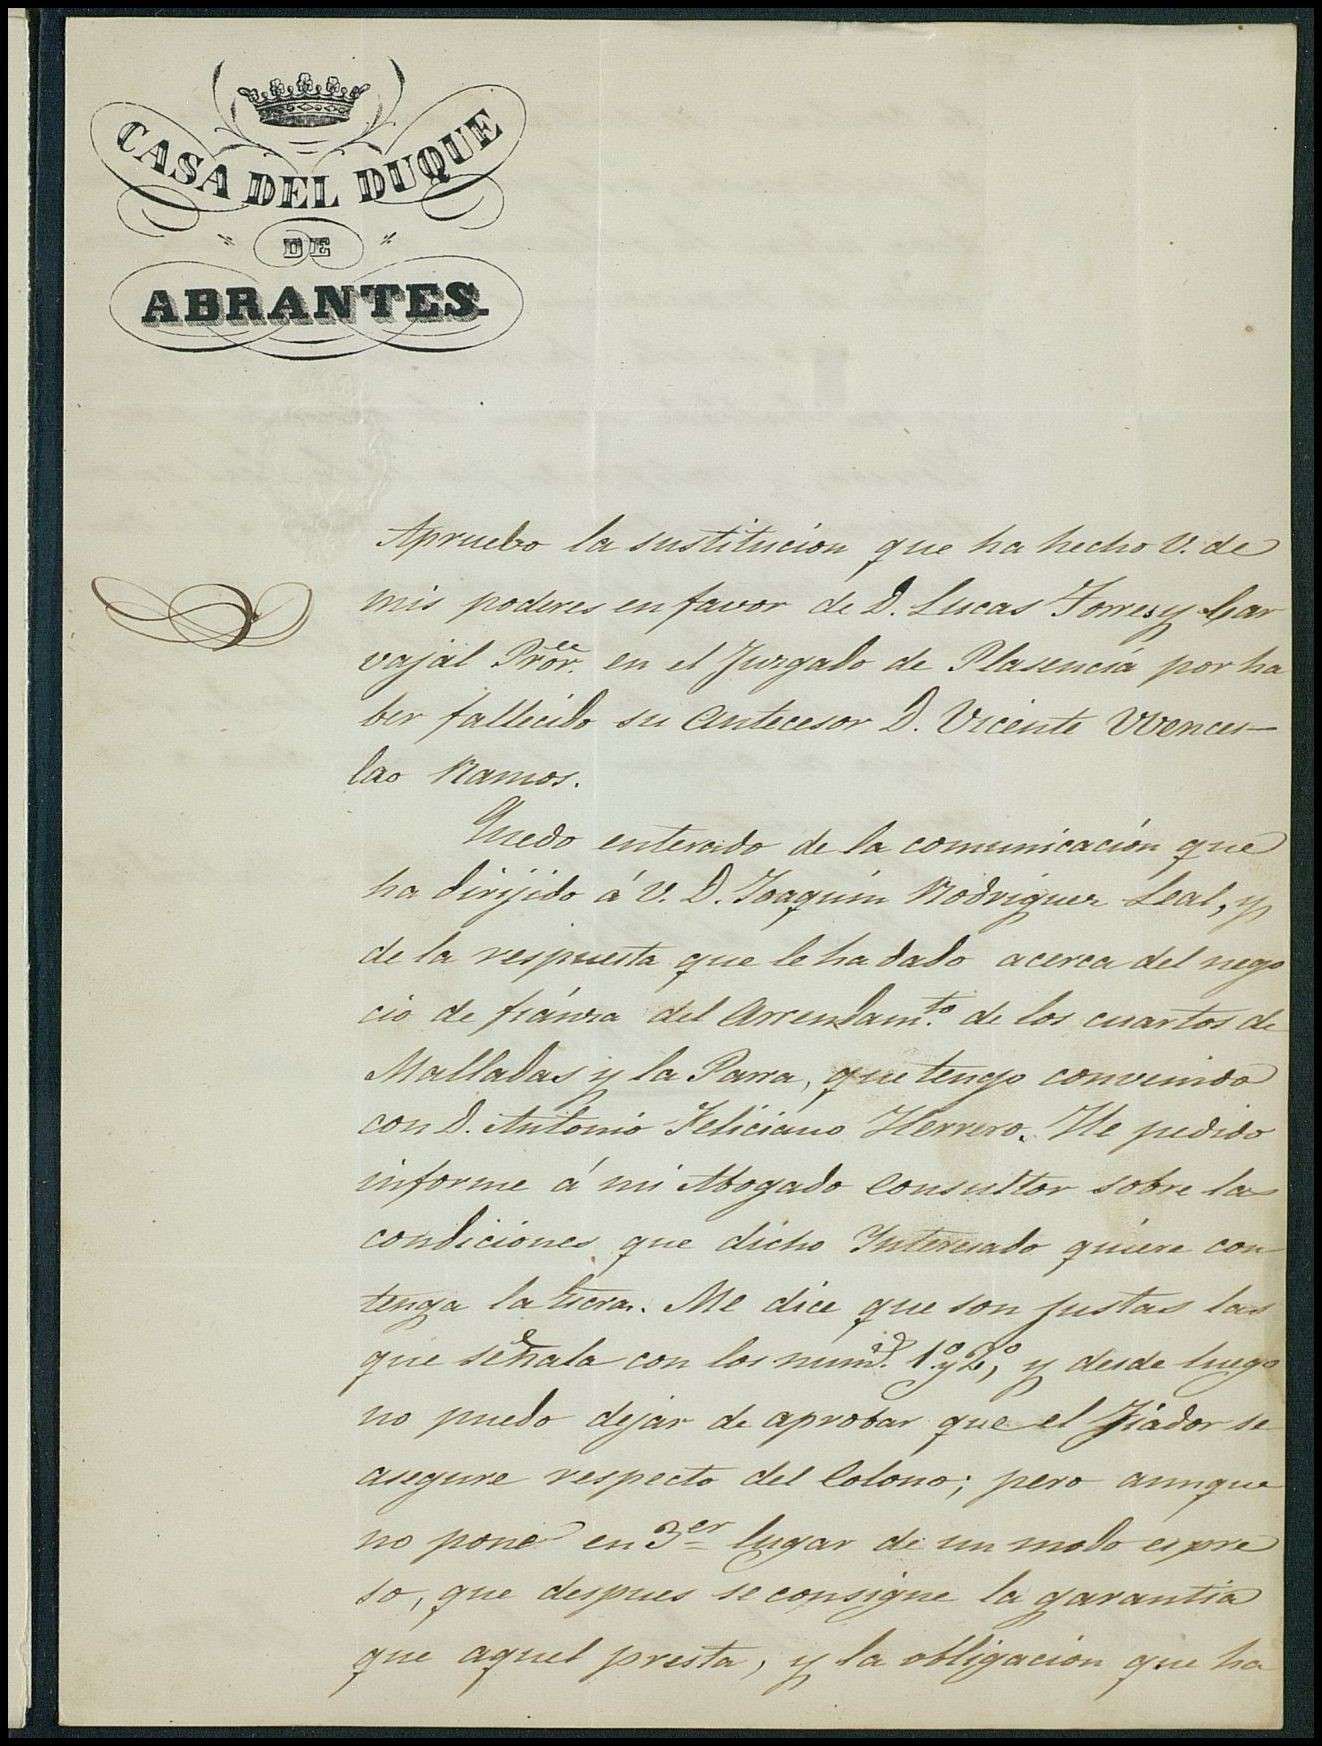 CASA DEL DUQUE
DE
ABRANTES.
Apruebo la sustitucion que ha hecho V. de
mis poderes en favor de D. Lucas Torres y Car
vajal Pror. en el Juzgado de Plasencia por ha
ber fallecido su antecesor D. Vicente Wences-
lao Ramos.
Quedo enterado de la comunicación que
ha dirijido á V. D. Joaquin Rodriguez Leal, y
de la respuesta que le ha dado acerca del nego
cio de fianza del Arrendamto. de los cuartos de
Malladas y la Parra, que tengo convenido
con D. Antonio Feliciano Herrero. He pedido
informe á mi Abogado Consultor sobre las
condiciones que dicho Interesado quiere con
tenga la Escra. Me dice que son justas las
que señala con los núms. 1º y 2º, y desde luego
no puedo dejar de aprobar que el Fiador se
asegure respecto del Colono; pero aunque
no pone en 3er lugar de un modo espre
so, que despues se consigne la garantia
que aquel presta, y la obligacion que ha